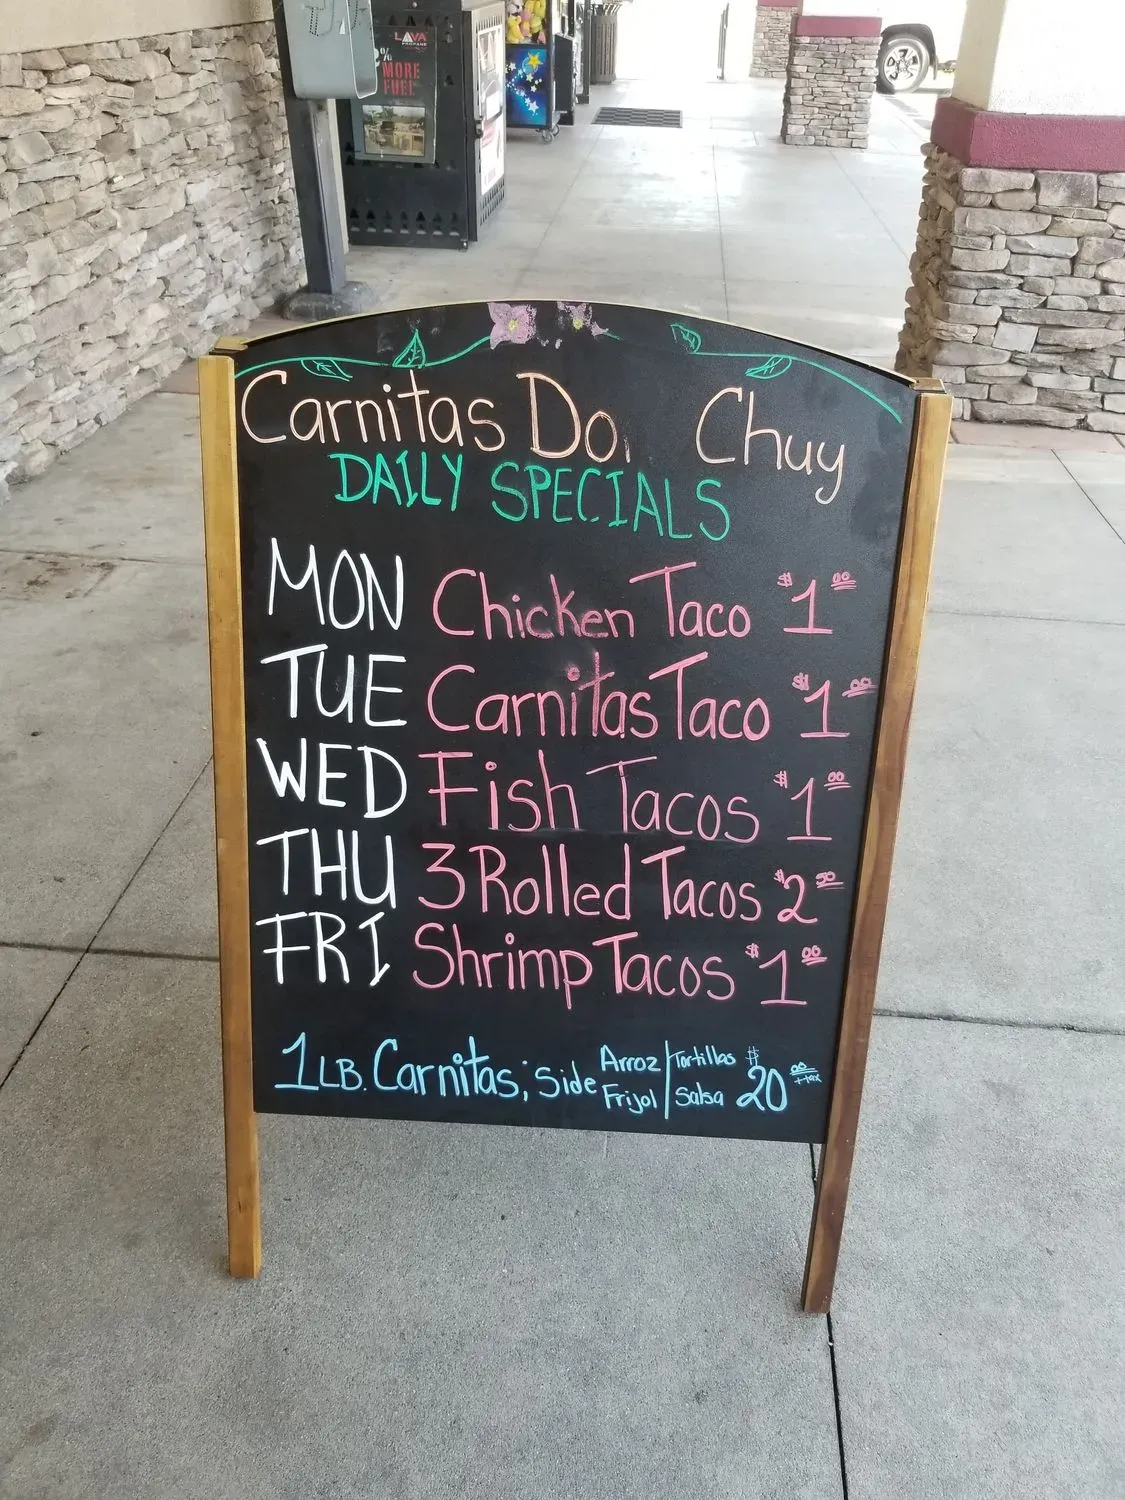 LAVA
PROPANE
%
MORE
FUEL
Carnitas Do. Chuy
DAILY SPECIALS
MON Chicken Taco $1.00
TUE Carnitas Taco $1.00
WED Fish Tacos $1.00
THU 3 Rolled Tacos $2.50
FRI Shrimp Tacos $1.00
1 LB. Carnitas, Side Arroz / Tortillas $20.00 +tax
Frijol / Salsa